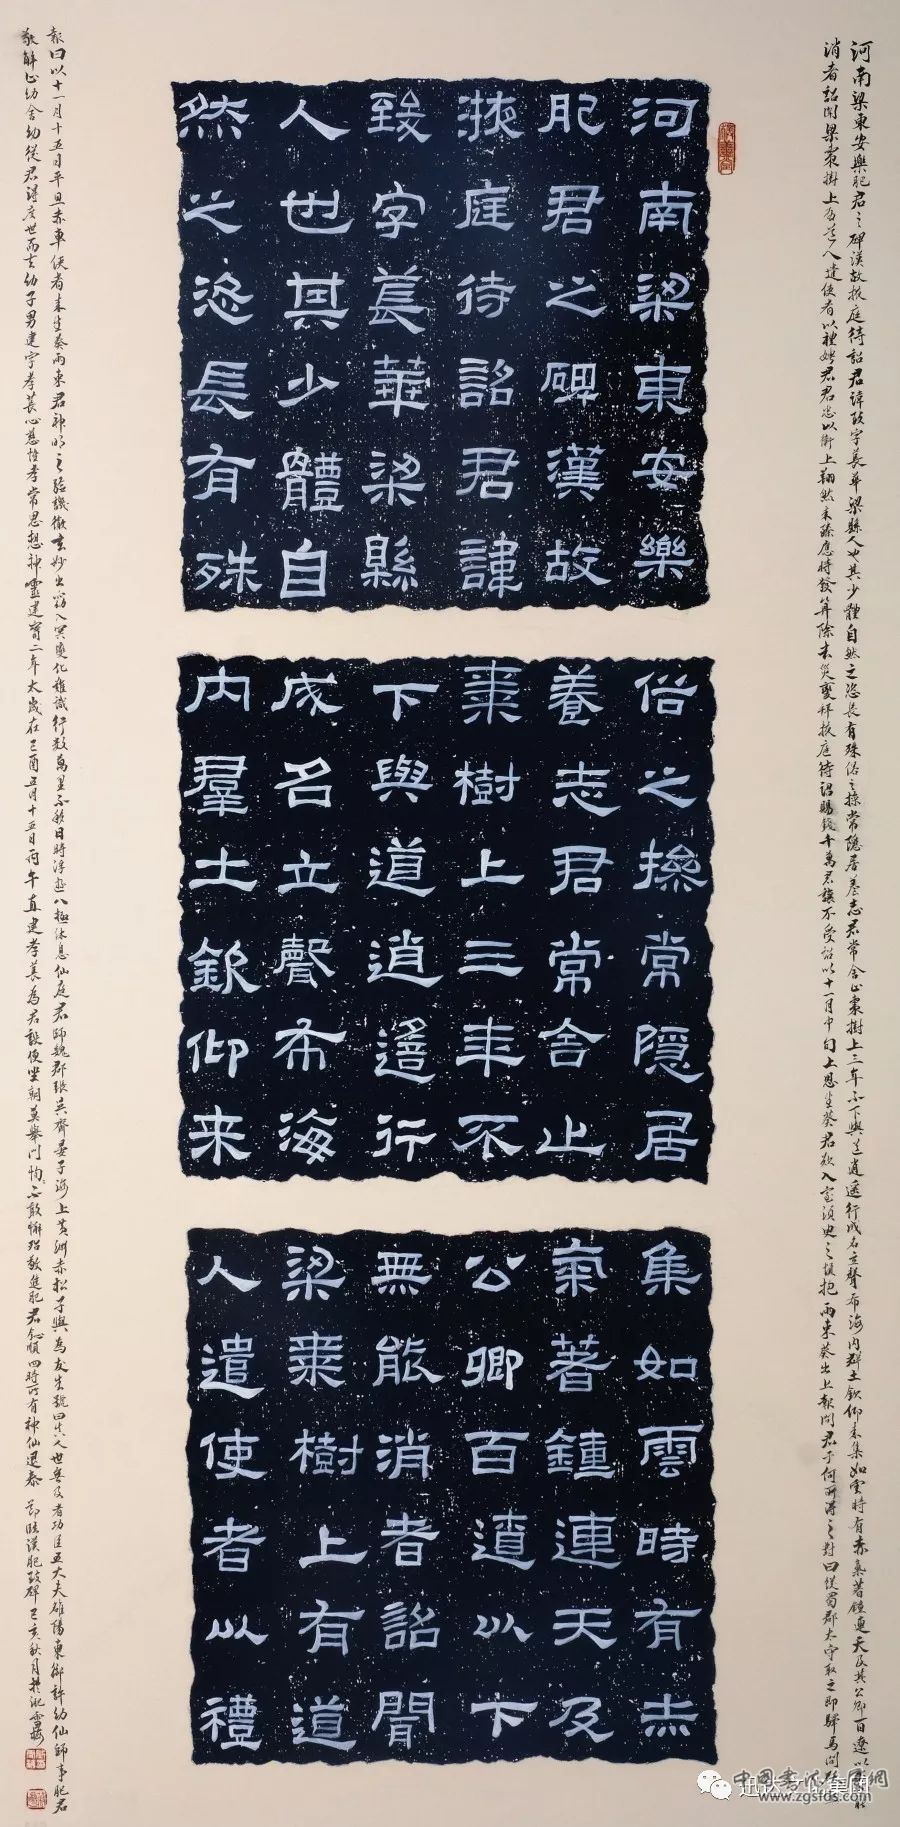 河南梁東安樂肥君之碑漢故掖庭待詔君諱致字萇華梁縣人也其少體自然之恣長有殊俗之操常隱居養志君常舍止棗樹上三年不下與道逍遙行成名立聲布海內群士欽仰来集如雲時有赤氣著鐘連天及其公卿百遼以下無能
消者詔聞梁棗樹上有道人遣使者以禮娉君君忠以衛上翔然来臻應時發算除去災變拜掖庭待詔賜錢千萬君讓不受詔以十一月中旬上思生葵君却入室須臾之頃抱兩束葵出上報問君于何所得之對曰從蜀郡太守取之即驛馬問
河南梁東安樂
肥君之碑漢故
掖庭待詔君諱
致字萇華梁縣
人也其少體自
然之恣長有殊
俗之操常隱居
養志君常舍止
棗樹上三年不
下與道逍遙行
成名立聲布海
内羣士欽仰来
集如雲時有赤
氣著鐘連天及
公卿百遼以下
無能消者詔聞
梁棗樹上有道
人遣使者以禮
報曰以十一月十五日平旦赤車使者来生葵兩束君神明之驗譏徹玄妙出窈入冥變化難識行數萬里不移日時浮遊八極休息仙庭君師魏郡張吳齊晏子海上黃淵赤松子與為友生號曰真人世無及者功臣五大夫雒陽東鄉許幼仙師事肥君
敬解止幼舍幼從君得度世而去幼子男建字孝萇心慈性孝常思想神靈建寧二年太歲在己酉五月十五日丙午直建孝萇為君設便坐朝莫舉門恂恂不敢懈殆敬進肥君餟順四時所有神仙退泰 節臨漢肥致碑 己亥秋月於淝
中国书法家园网
www.zgsfds.com